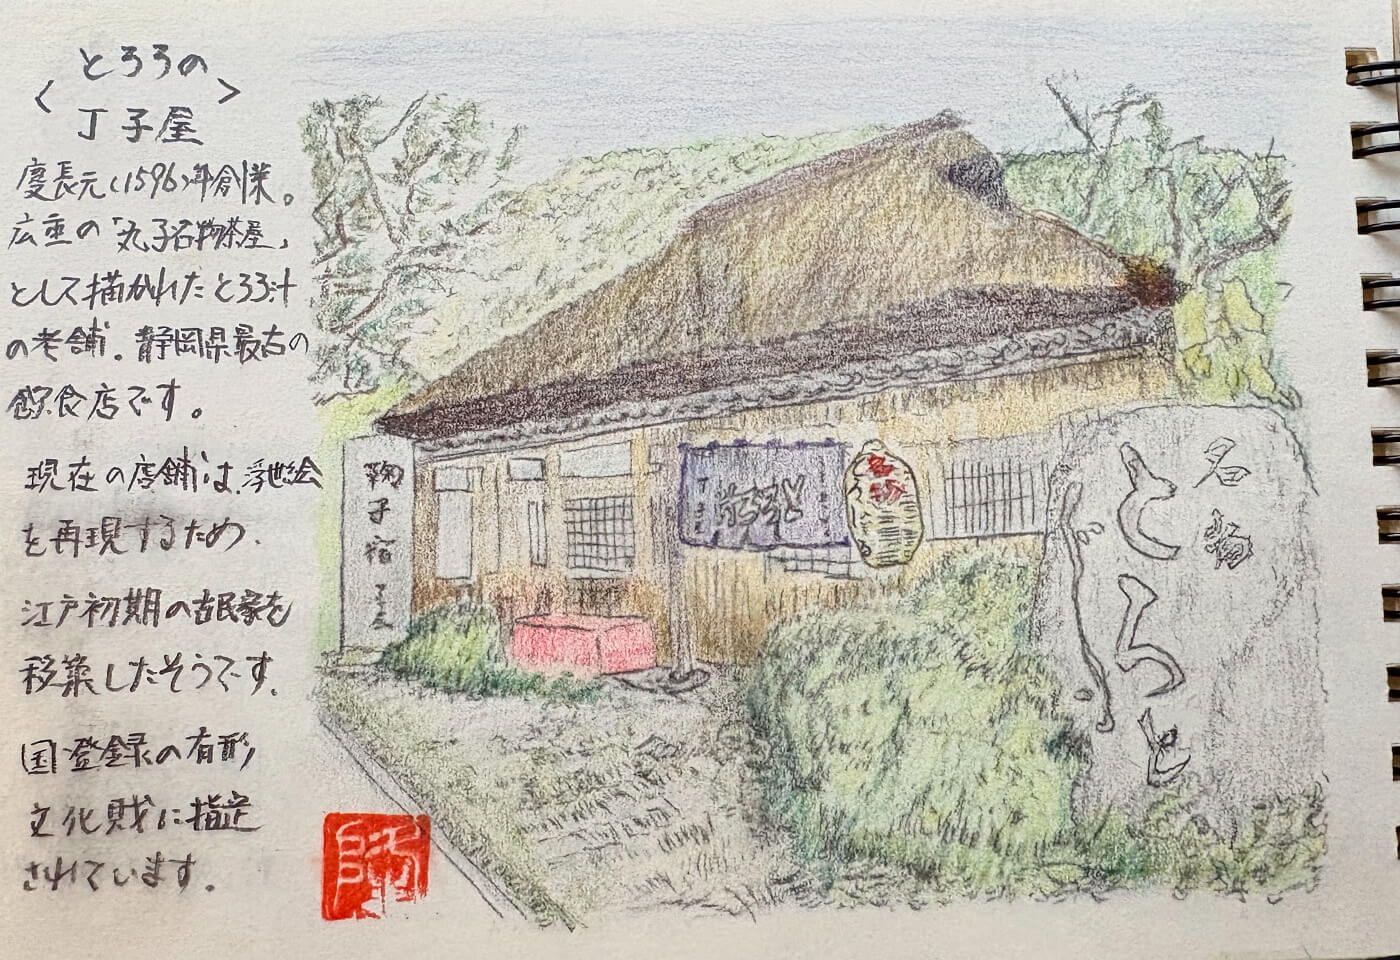 とろろの
＜　＞
丁子屋
慶長元(1596)年創業。
広重の「丸子名物茶屋」
として描かれたとろろ汁
の老舗。静岡県最古の
飲食店です。
現在の店舗は、浮世絵
を再現するため、
江戸初期の古民家を
移築したそうです。
国登録の有形
文化財に指定
されています。
鞠子宿
丁子屋
とろろ汁
名物
名物
とろろ汁